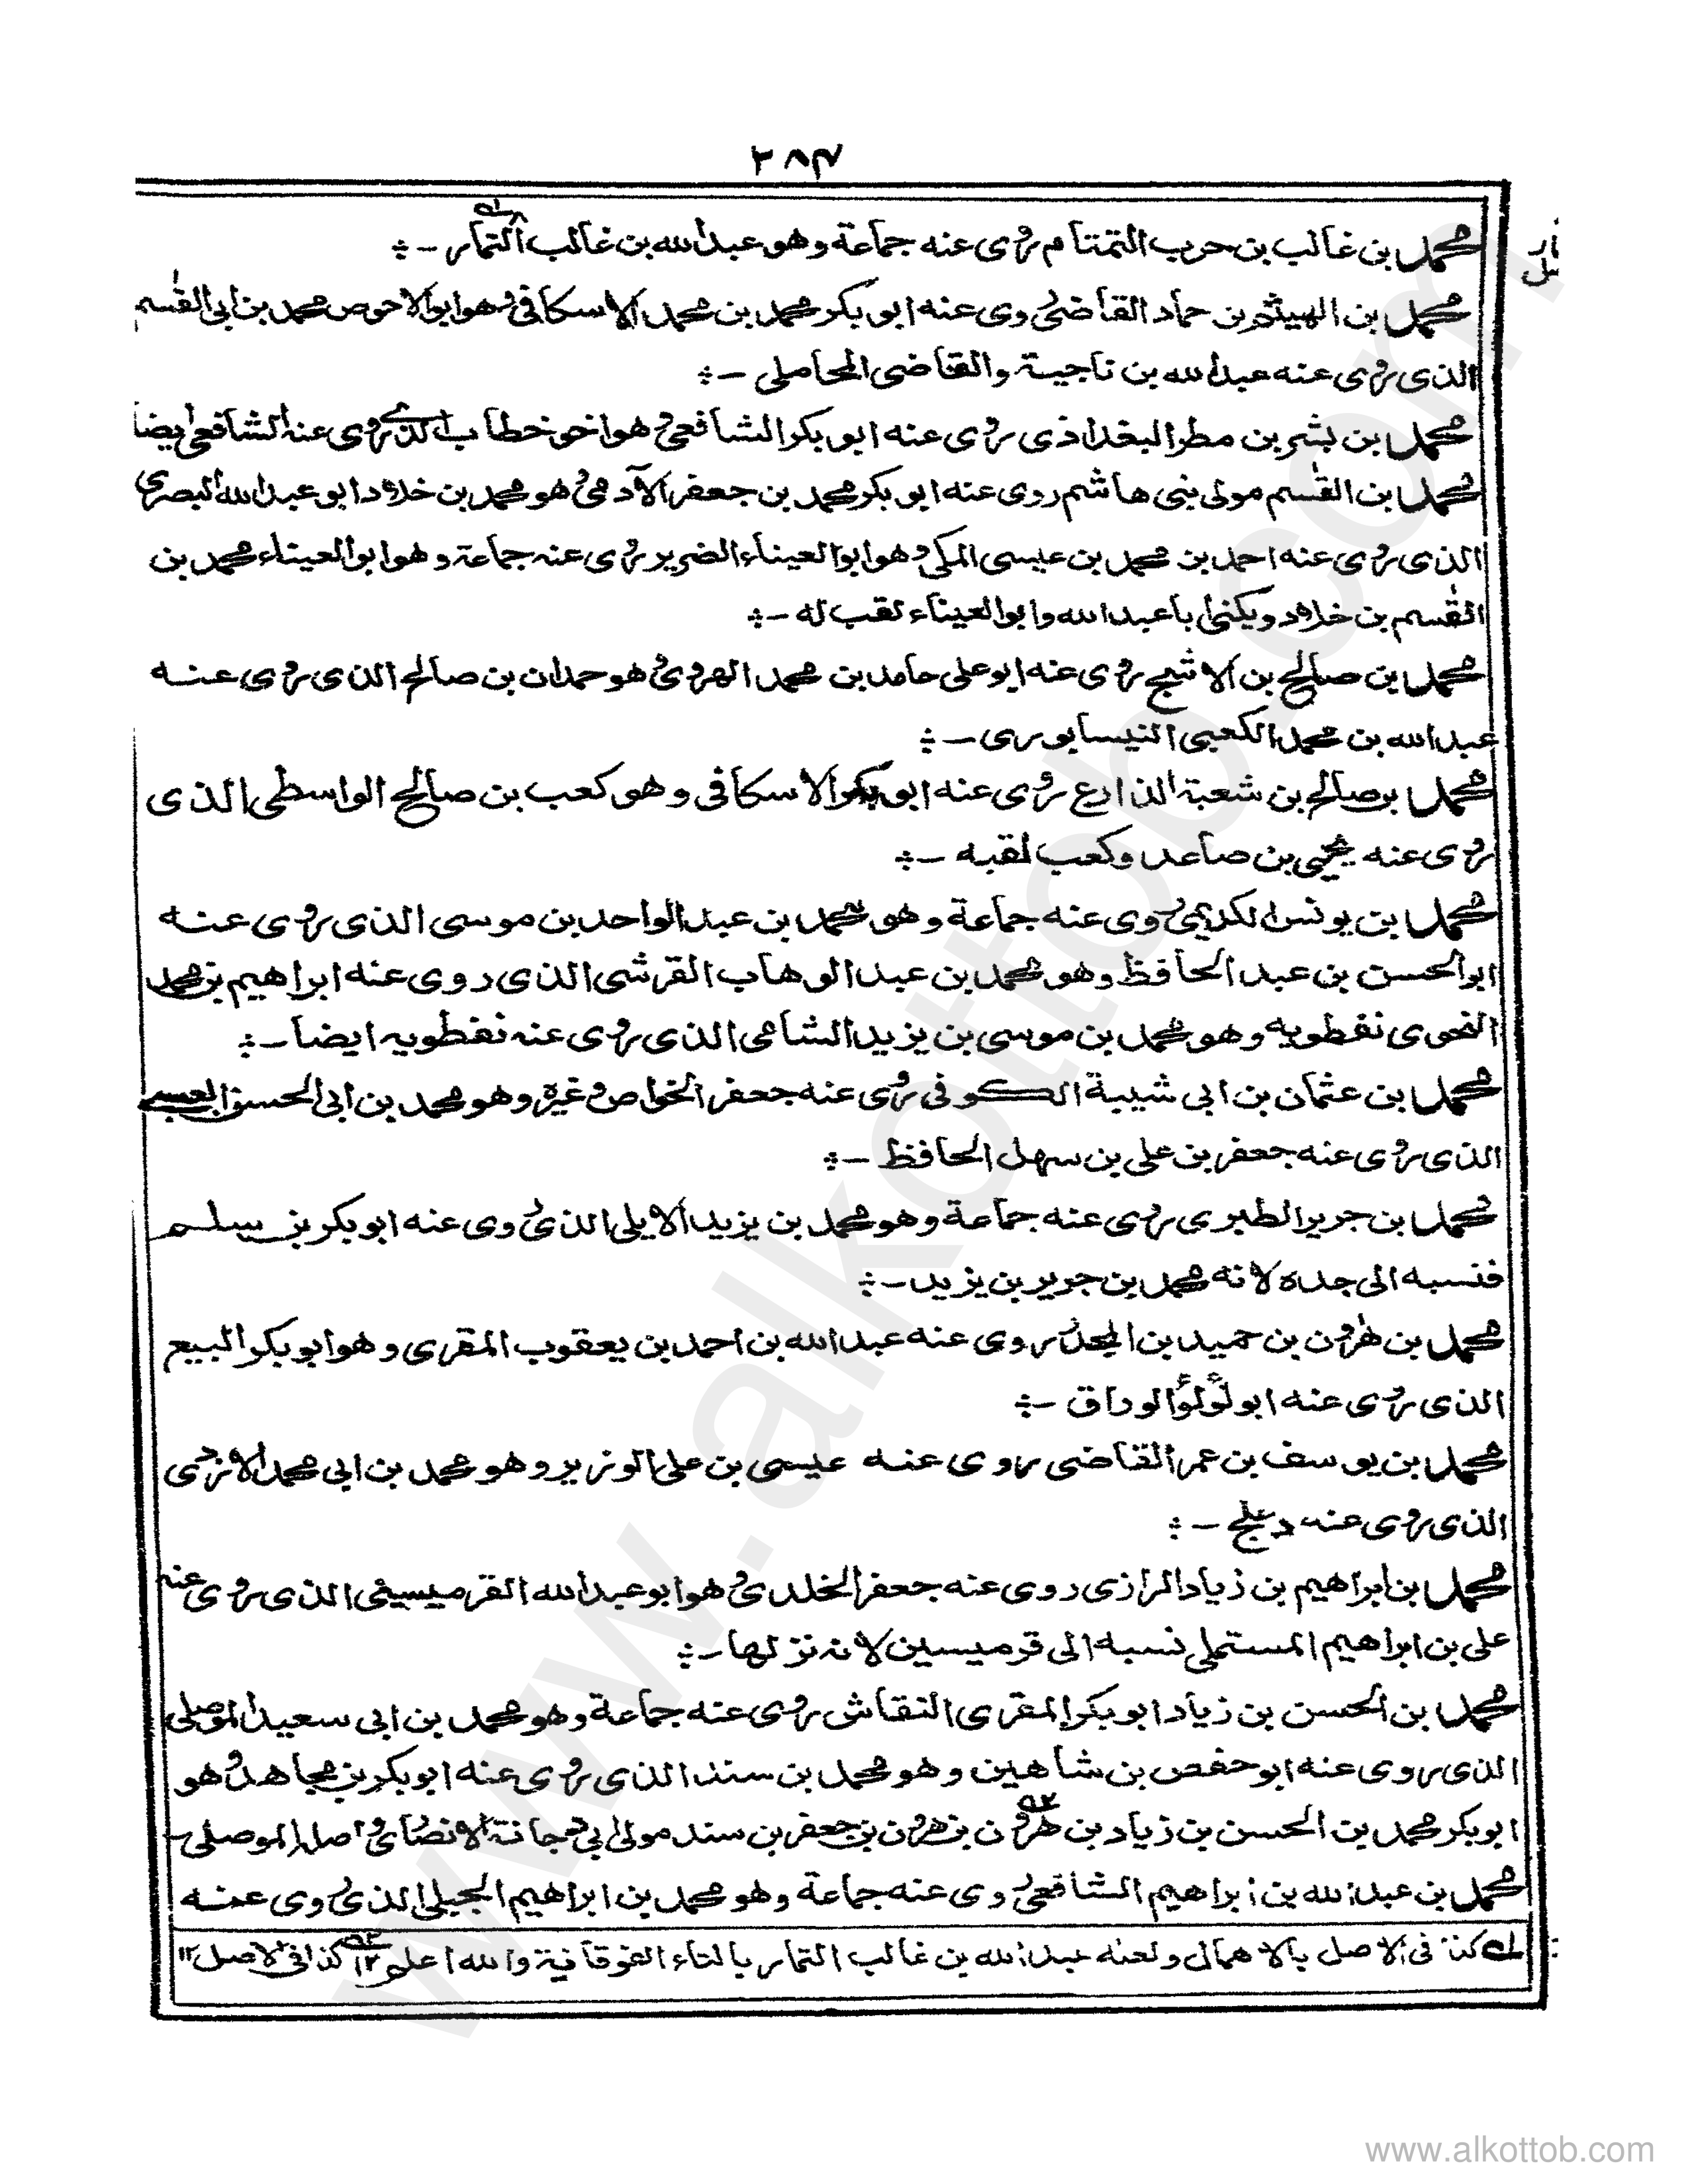 ۲۸۴
محمد بن غالب بن حرب التمتام روى عنه جماعة وهو عبدالله بن غالب التمار -
محمد بن الهيثم بن حماد القاضى روى عنه ابو بكر محمد بن محمد الاسكافى وهو ابو الاحوص محمد بن ابى القسم
الذى روى عنه عبدالله بن ناجية والقاضى المحاملى -
محمد بن بشر بن مطر البغداذى روى عنه ابو بكر الشافعى وهو اخو خطاب الذى روى عنه الشافعى ايضا
محمد بن القسم مولى بنى هاشم روى عنه ابو بكر محمد بن جعفر الآدمى وهو محمد بن خلاد ابو عبدالله البصرى
الذى روى عنه احمد بن محمد بن عيسى المكى وهو ابو العيناء الضرير روى عنه جماعة وهو ابو العيناء محمد بن
القسم بن خلاد ويكنى ابا عبد الله وابو العيناء لقب له -
محمد بن صالح بن الاشج روى عنه ابو على حامد بن محمد الهروى وهو حمدان بن صالح الذى روى عنه
عبدالله بن محمد الكعبى النيسابورى -
محمد بن صالح بن شعبة الذارع روى عنه ابو بكر الاسكافى وهو كعب بن صالح الواسطى الذى
روى عنه يحيى بن صاعد وكعب لقبه -
محمد بن يونس الكديمى روى عنه جماعة وهو محمد بن عبد الواحد بن موسى الذى روى عنه
ابو الحسن بن عبد الحافظ وهو محمد بن عبد الوهاب القرشى الذى روى عنه ابراهيم بن محمد
النحوى نفطويه وهو محمد بن موسى بن يزيد الشامى الذى روى عنه نفطويه ايضا -
محمد بن عثمان بن ابى شيبة الكوفى روى عنه جعفر الخواص وغيره وهو محمد بن ابى الحسن العبسى
الذى روى عنه جعفر بن على بن سهل الحافظ -
محمد بن جرير الطبرى روى عنه جماعة وهو محمد بن يزيد الايلى الذى روى عنه ابو بكر بن سلم
فنسبه الى جده لانه محمد بن جرير بن يزيد -
محمد بن هرون بن حميد بن المجدر روى عنه عبدالله بن احمد بن يعقوب المقرى وهو ابو بكر البيع
الذى روى عنه ابو لؤلؤ الوراق -
محمد بن يوسف بن عمر القاضى روى عنه عيسى بن على الوزير وهو محمد بن ابى محمد الازدى
الذى روى عنه دعلج -
محمد بن ابراهيم بن زياد الرازى روى عنه جعفر الخلدى وهو ابو عبدالله القرميسينى الذى روى عنه
على بن ابراهيم المستملى نسبه الى قرميسين لانه نزلها -
محمد بن الحسن بن زياد ابو بكر المقرى النقاش روى عنه جماعة وهو محمد بن ابى سعيد الموصلى
الذى روى عنه ابو حفص بن شاهين وهو محمد بن سند الذى روى عنه ابو بكر بن مجاهد وهو
ابو بكر محمد بن الحسن بن زياد بن هرون بن هرون بن جعفر بن سند مولى ابى دجانة الانصارى اصله الموصلى -
محمد بن عبدالله بن ابراهيم الشافعى روى عنه جماعة وهو محمد بن ابراهيم الجبلى الذى روى عنه
له كذا فى الاصل بالاهمال ولعله عبدالله بن غالب التمار بالتاء الفوقانية والله اعلم ۱۲ كذا فى الاصل ۱۲
www.alkottob.com
www.alkottob.com